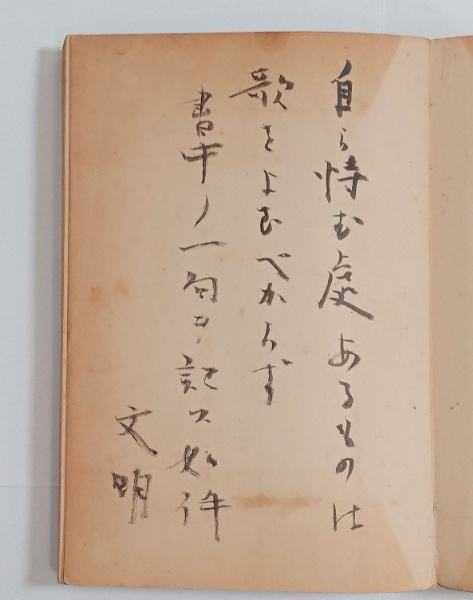 自ら恃む處あるものは
歌をよむべからず
書中ノ一句ヲ記ス如件
文明